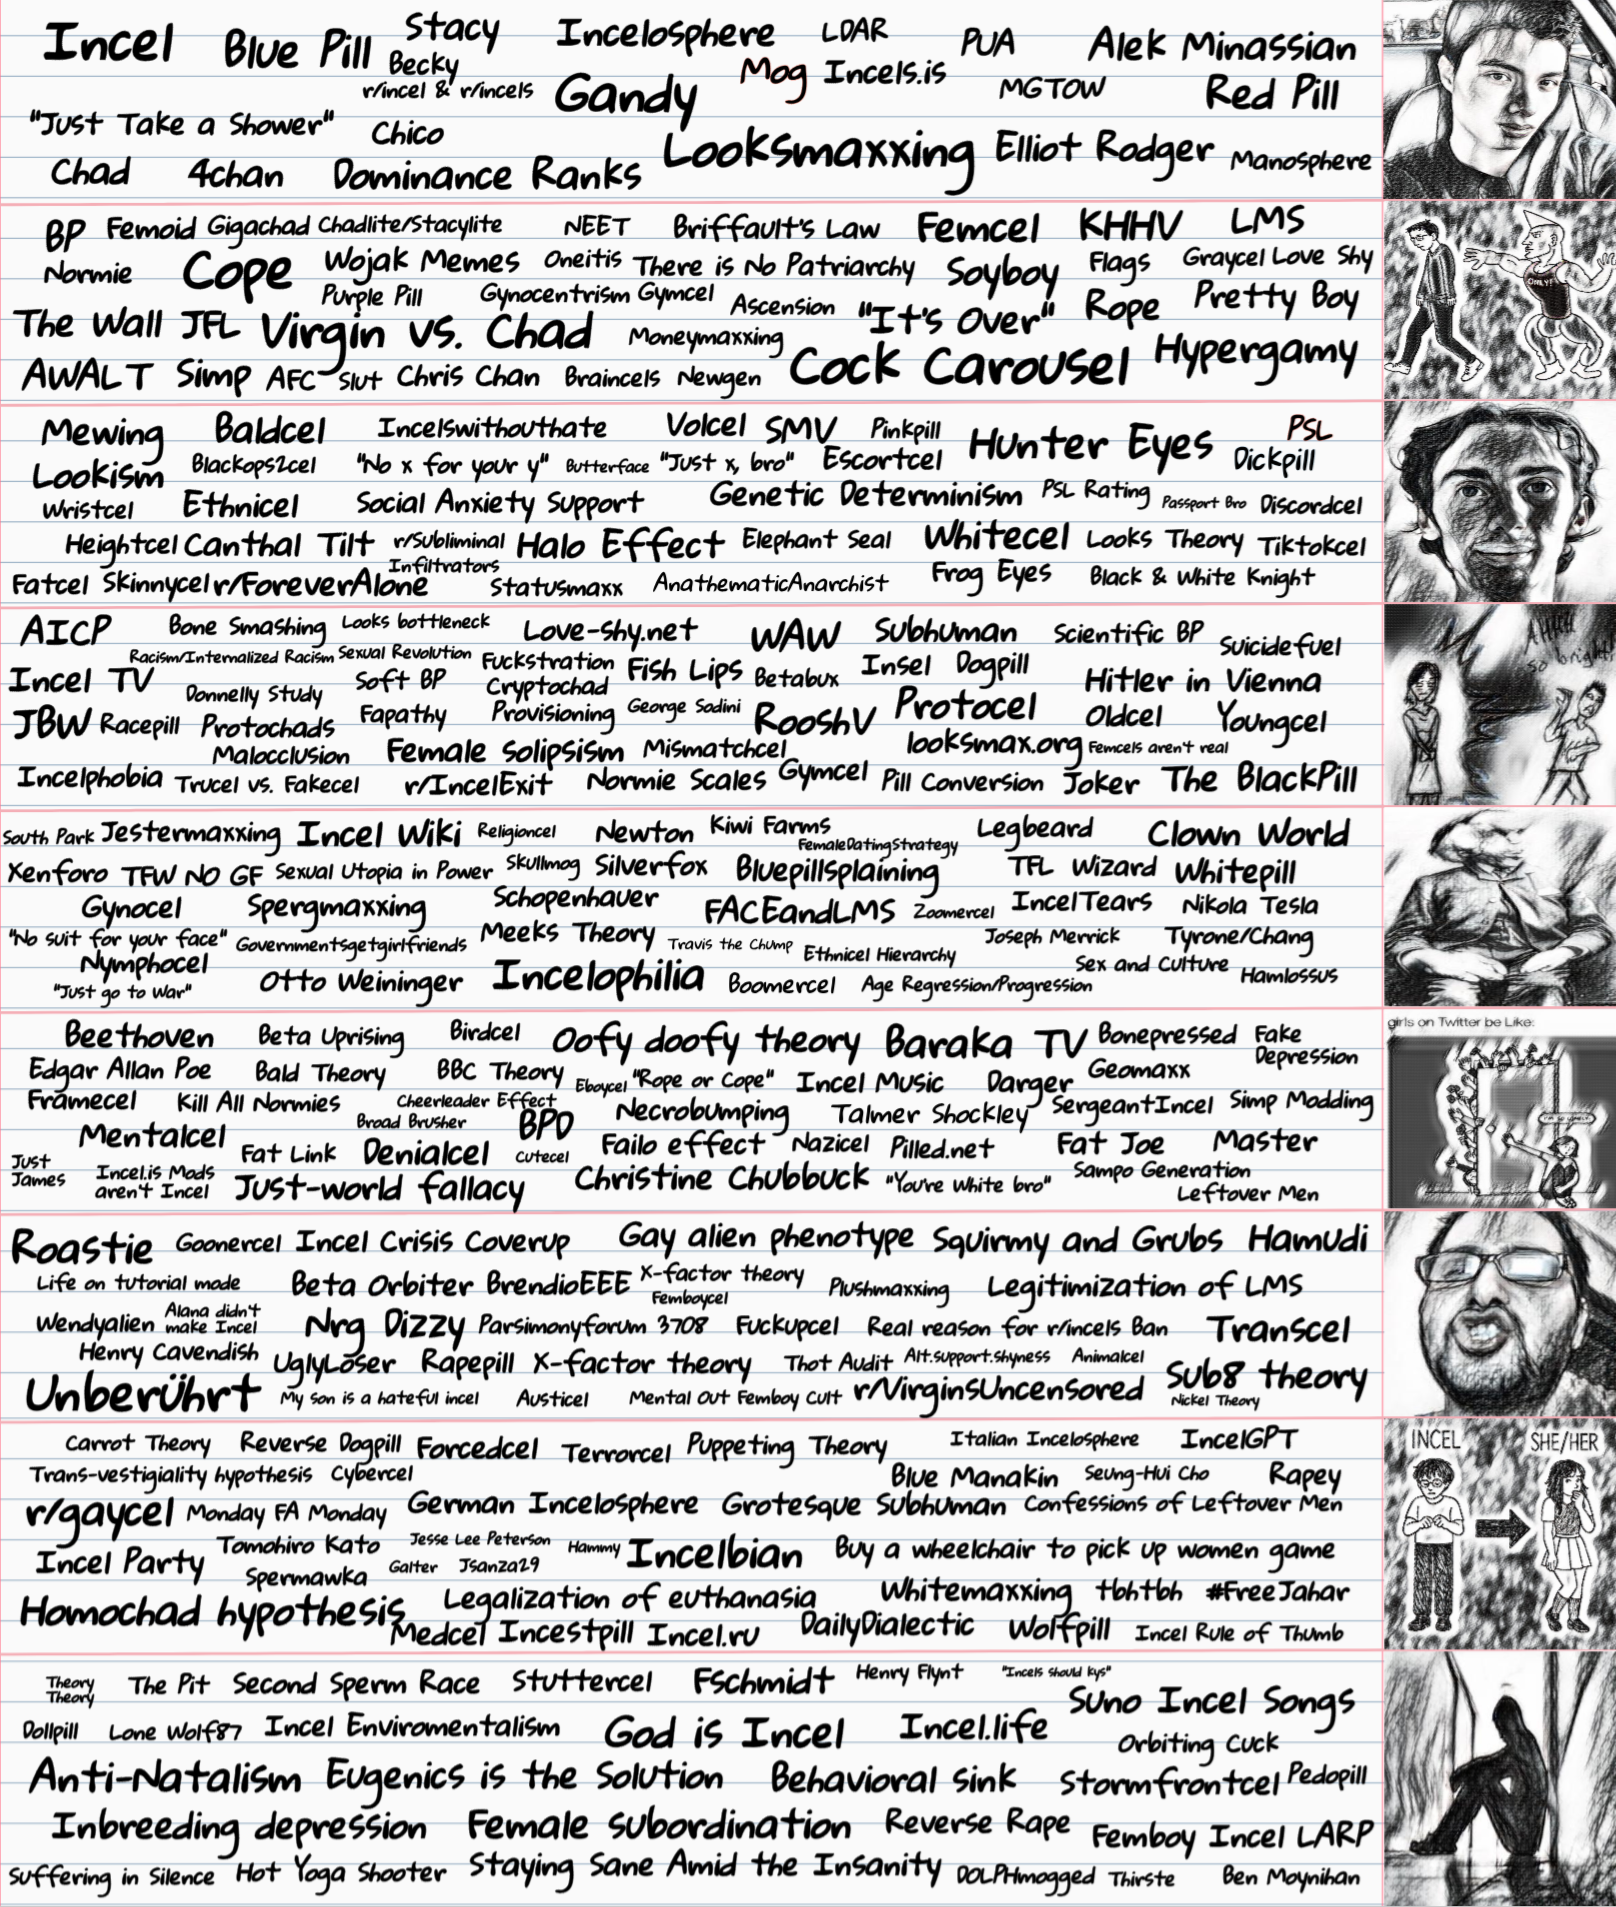 Incel Blue Pill Stacy Incelosphere LDAR PUA Alek Minassian
Becky Mog Incels.is
r/incel & r/incels Gandy MGTOW Red Pill
"Just Take a Shower" Chico
Looksmaxxing Elliot Rodger Manosphere
Chad 4chan Dominance Ranks
BP Femoid Gigachad Chadlite/Stacylite NEET Briffault's Law Femcel KHHV LMS
Normie Cope Wojak Memes Oneitis There is No Patriarchy Soyboy Flags Graycel Love Shy
Purple Pill Gynocentrism Gymcel Ascension "It's Over" Rope Pretty Boy
The Wall JFL Virgin vs. Chad Moneymaxxing
Cock Carousel Hypergamy
AWALT Simp AFC Slut Chris Chan Braincels Newgen
ONLY!
Mewing Baldcel Incelswithouthate Volcel SMV Pinkpill Hunter Eyes PSL
Lookism Blackops2cel "No x for your y" Butterface "Just x, bro" Escortcel Dickpill
Wristcel Ethnicel Social Anxiety Support Genetic Determinism PSL Rating Passport Bro Discordcel
Heightcel Canthal Tilt r/Subliminal Halo Effect Elephant Seal Whitecel Looks Theory Tiktokcel
Infiltrators
Fatcel Skinnycel r/ForeverAlone Statusmaxx AnathematicAnarchist Frog Eyes Black & White Knight
AICP Bone Smashing Looks bottleneck Love-shy.net WAW Subhuman Scientific BP Suicidefuel
Racism/Internalized Racism Sexual Revolution
Incel TV Soft BP Fuckstration Fish Lips Betabux Insel Dogpill Hitler in Vienna
Donnelly Study Cryptochad
JBW Racepill Protochads Fapathy Provisioning George Sodini RooshV Protocel Oldcel Youngcel
Malocclusion Female solipsism Mismatchcel looksmax.org Femcels aren't real
Incelphobia Trucel vs. Fakecel r/IncelExit Normie Scales Gymcel Pill Conversion Joker The BlackPill
AHHH
so bright!
South Park Jestermaxxing Incel Wiki Religioncel Newton Kiwi Farms Legbeard Clown World
FemaleDatingStrategy
Xenforo TFW NO GF Sexual Utopia in Power Skullmog Silverfox Bluepillsplaining TFL Wizard Whitepill
Gynocel Spergmaxxing Schopenhauer FACEandLMS Zoomercel IncelTears Nikola Tesla
"No suit for your face" Governmentsgetgirlfriends Meeks Theory Travis the Chump Ethnicel Hierarchy Joseph Merrick Tyrone/Chang
Nymphocel Sex and Culture Hamlossus
"Just go to war" Otto Weininger Incelophilia Boomercel Age Regression/Progression
Beethoven Beta Uprising Birdcel Oofy doofy theory Baraka TV Bonepressed Fake Depression
Edgar Allan Poe Bald Theory BBC Theory Eboycel "Rope or Cope" Incel Music Darger Geomaxx
Framecel Kill All Normies Cheerleader Effect Necrobumping Talmer Shockley SergeantIncel Simp Modding
Broad Brusher BPD
Mentalcel Fat Link Denialcel Cutecel Failo effect Nazicel Pilled.net Fat Joe Master
Just James Incel.is Mods aren't Incel Just-world fallacy Christine Chubbuck "You're white bro" Sampo Generation
Leftover Men
girls on Twitter be Like:
Roastie Goonercel Incel Crisis Coverup Gay alien phenotype Squirmy and Grubs Hamudi
Life on tutorial mode Beta Orbiter BrendioEEE X-factor theory Plushmaxxing Legitimization of LMS
Femboycel
Wendyalien Alana didn't make Incel Nrg Dizzy Parsimonyforum 3708 Fuckupcel Real reason for r/incels Ban Transcel
Henry Cavendish UglyLoser Rapepill X-factor theory Thot Audit Alt.support.shyness Animalcel
Sub8 theory
Unberührt My son is a hateful incel Austicel Mental Out Femboy Cult r/VirginsUncensored Nickel Theory
Carrot Theory Reverse Dogpill Forcedcel Terrorcel Puppeting Theory Italian Incelosphere IncelGPT
Trans-vestigiality hypothesis Cybercel Blue Manakin Seung-Hui Cho Rapey
r/gaycel Monday FA Monday German Incelosphere Grotesque Subhuman Confessions of Leftover Men
Incel Party Tomohiro Kato Jesse Lee Peterson Hammy Incelbian Buy a wheelchair to pick up women game
Spermawka Galter Jsanza29
Homochad hypothesis Legalization of euthanasia Whitemaxxing tbhtbh #FreeJahar
Medcel Incestpill Incel.ru DailyDialectic Wolfpill Incel Rule of Thumb
INCEL SHE/HER
Theory Theory The Pit Second Sperm Race Stuttercel FSchmidt Henry Flynt "Incels should kys"
Suno Incel Songs
Dollpill Lone Wolf87 Incel Enviromentalism God is Incel Incel.life Orbiting Cuck
Anti-Natalism Eugenics is the Solution Behavioral sink Stormfrontcel Pedopill
Inbreeding depression Female subordination Reverse Rape Femboy Incel LARP
Suffering in Silence Hot Yoga Shooter Staying Sane Amid the Insanity DOLPHmogged Thirste Ben Moynihan